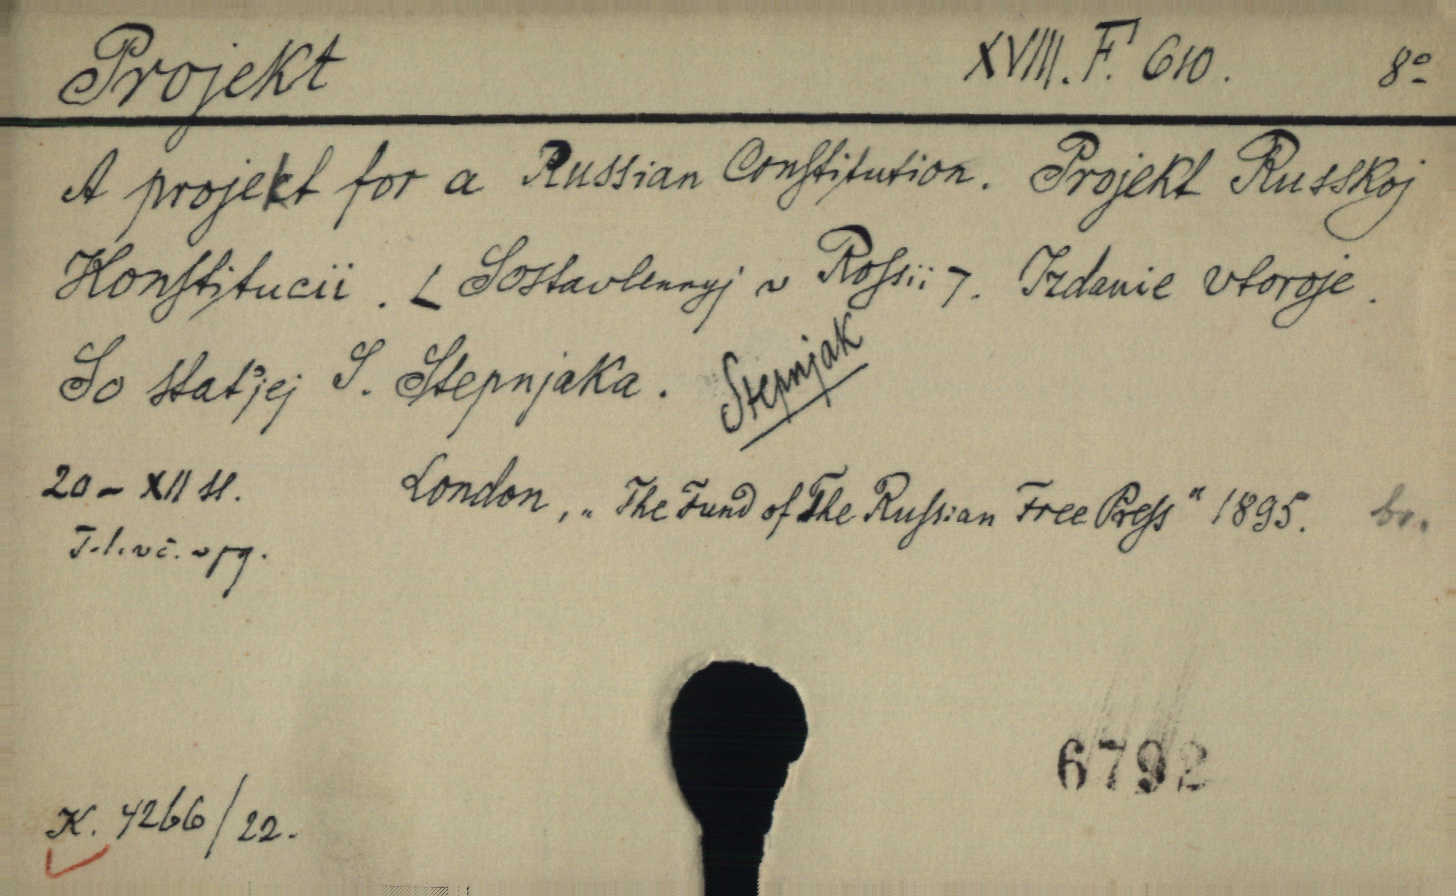 Projekt XVIII. F. 610. 8º
A projekt for a Russian Constitution. Projekt Russkoj
Konstitucii. [Sostavlennyj v Rossii]. Izdanie vtoroje.
So stat'jej S. Stepnjaka. Stepnjak
20 - XII st. London, „The Fund of The Russian Free Press" 1895. br.
T. l. v č. v rg.
6792
K. 4266/22.